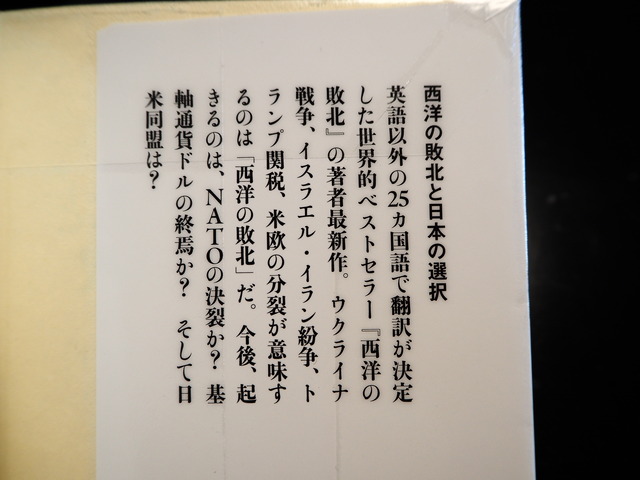 西洋の敗北と日本の選択
英語以外の25カ国語で翻訳が決定
した世界的ベストセラー『西洋の
敗北』の著者最新作。ウクライナ
戦争、イスラエル・イラン紛争、ト
ランプ関税、米欧の分裂が意味す
るのは「西洋の敗北」だ。今後、起
きるのは、NATOの決裂か？　基
軸通貨ドルの終焉か？　そして日
米同盟は？